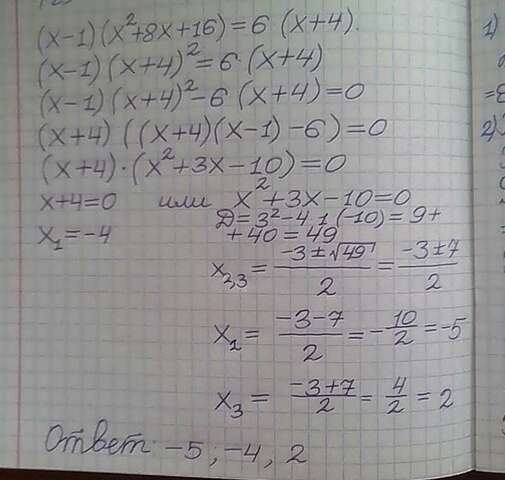 (x-1)(x²+8x+16)=6 (x+4).
(x-1)(x+4)²=6·(x+4)
(x-1)(x+4)²-6(x+4)=0
(x+4)((x+4)(x-1)-6)=0
(x+4)·(x²+3x-10)=0
x+4=0 или x²+3x-10=0
x₁=-4 Д=3²-4·1·(-10)=9+
+40=49
x₂,₃ = (-3±√49)/2 = (-3±7)/2
x₂ = (-3-7)/2 = -10/2 = -5
x₃ = (-3+7)/2 = 4/2 = 2
Ответ: -5; -4, 2
1)
=8
2)